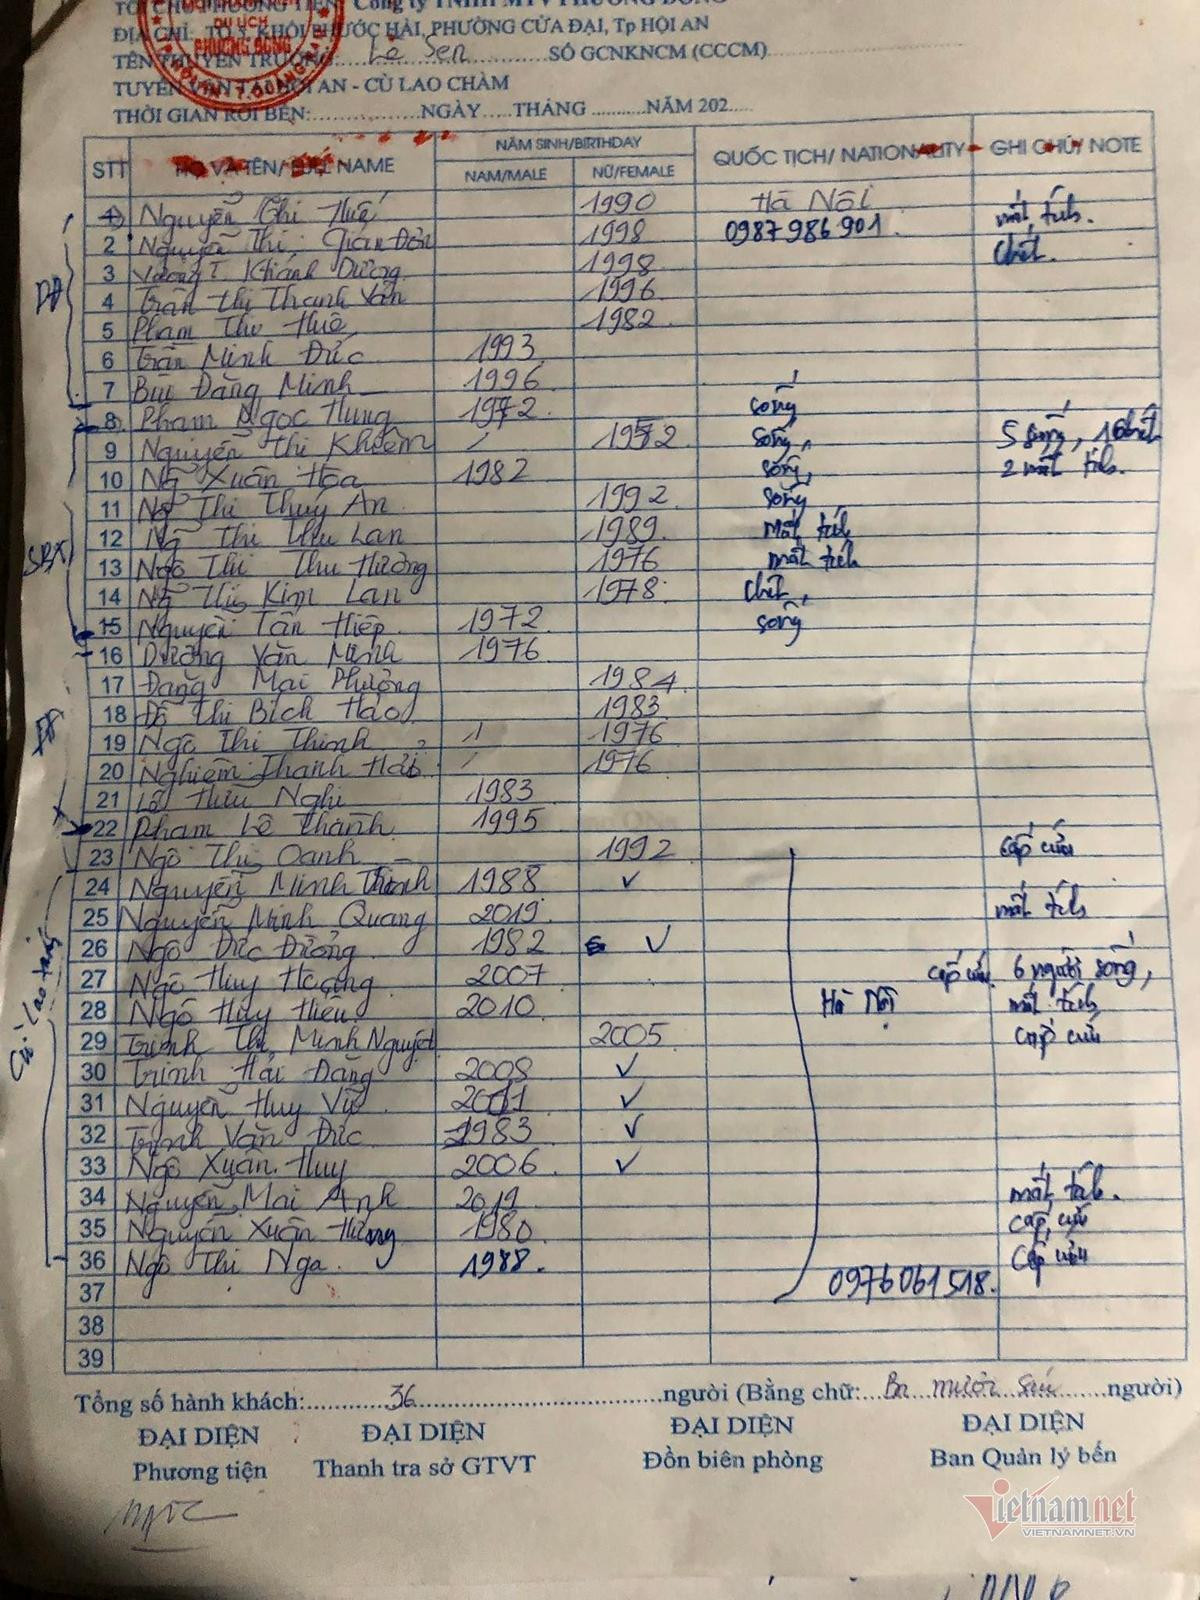 TỔ CHỨC PHƯƠNG TIỆN: Công ty TNHH MTV PHƯƠNG ĐÔNG
ĐỊA CHỈ: TỔ 5, KHỐI PHƯỚC HẢI, PHƯỜNG CỬA ĐẠI, Tp HỘI AN
TÊN THUYỀN TRƯỞNG: Lê Sen SỐ GCNKNCM (CCCM)
TUYẾN VẬN TẢI HỘI AN - CÙ LAO CHÀM
THỜI GIAN RỜI BẾN: NGÀY THÁNG NĂM 202
DU LỊCH
PHƯƠNG ĐÔNG
STT HỌ VÀ TÊN/ FULL NAME NĂM SINH/BIRTHDAY QUỐC TỊCH/ NATIONALITY GHI CHÚ/ NOTE
NAM/MALE NỮ/FEMALE
1 Nguyễn Thị Huế 1990 Hà Nội mất tích.
2 Nguyễn Thị Giản Đơn 1998 0987986901 Chết.
3 Vương T. Khánh Dương 1998
4 Trần Thị Thanh Vân 1996
5 Phạm Thu Huê 1982
6 Trần Minh Đức 1993
7 Bùi Đăng Minh 1996
8 Phạm Ngọc Hùng 1972 sống
9 Nguyễn Thị Khiêm 1952 sống, 5 sống, 1 chết
10 Ng Xuân Hòa 1982 sống, 2 mất tích.
11 Ng Thị Thúy An 1992 sống
12 Ng Thị Thu Lan 1989 Mất tích
13 Ngô Thị Thu Hường 1976 mất tích
14 Ng Thị Kim Lan 1978 Chết,
15 Nguyễn Tấn Hiệp 1972 sống
16 Dương Văn Minh 1976
17 Đặng Mai Phương 1984
18 Đỗ Thị Bích Hảo 1983
19 Ngô Thị Thinh 1976
20 Nghiêm Thanh Hải 1976
21 Lê Hữu Nghị 1983
22 Phạm Lê Thành 1995
23 Ngô Thị Oanh 1992 cấp cứu
24 Nguyễn Minh 1988 ✓
25 Nguyễn Minh Quang 2019 mất tích
26 Ngô Đức Dưỡng 1982 ✓
27 Ngô Huy Hoàng 2007 cấp cứu 6 người sống,
28 Ngô Huy Hiếu 2010 Hà Nội mất tích
29 Trịnh Thị Minh Nguyệt 2005 cấp cứu
30 Trịnh Hải Đăng 2008 ✓
31 Nguyễn Huy Vũ 2011 ✓
32 Trịnh Văn Đức 1983 ✓
33 Ngô Xuân Huy 2006 ✓
34 Nguyễn Mai Anh 2019 mất tích.
35 Nguyễn Xuân Hùng 1980 cấp cứu
36 Ngô Thị Nga. 1988. Cấp cứu
37 0976061518.
38
39
Cù Lao tràng
Tổng số hành khách: 36 người (Bằng chữ: Ba mươi sáu người)
ĐẠI DIỆN ĐẠI DIỆN ĐẠI DIỆN ĐẠI DIỆN
Phương tiện Thanh tra sở GTVT Đồn biên phòng Ban Quản lý bến
Vietnamnet
VIETNAMNET.VN